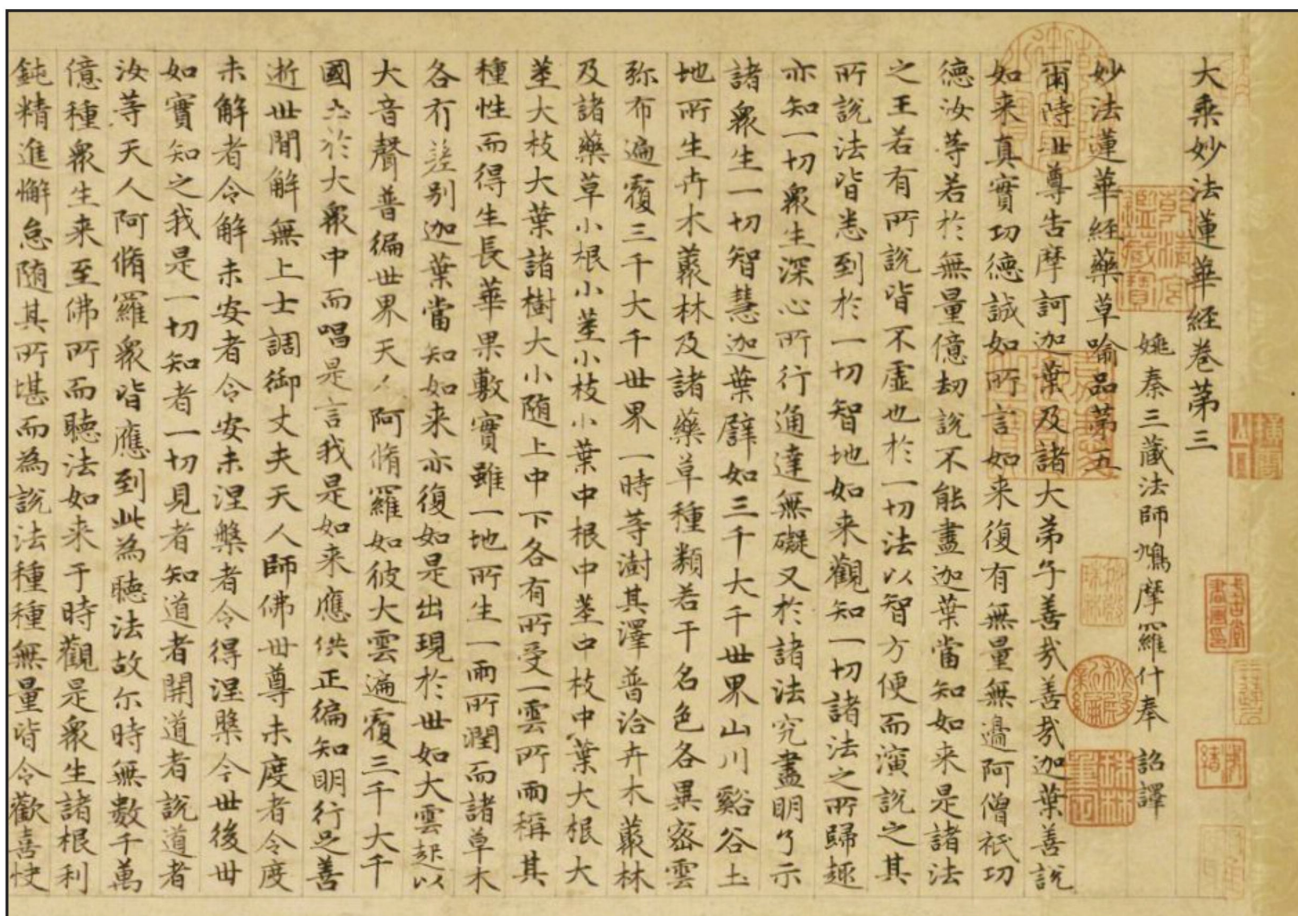 大乘妙法蓮華經卷第三
姚秦三藏法師鳩摩羅什奉 詔譯
妙法蓮華經藥草喻品第五
爾時世尊告摩訶迦葉及諸大弟子善哉善哉迦葉善說
如来真實功德誠如所言如来復有無量無邊阿僧祇功
德汝等若於無量億劫說不能盡迦葉當知如来是諸法
之王若有所說皆不虛也於一切法以智方便而演說之其
所說法皆悉到於一切智地如来觀知一切諸法之所歸趣
亦知一切衆生深心所行通達無礙又於諸法究盡明了示
諸衆生一切智慧迦葉譬如三千大千世界山川谿谷土
地所生卉木叢林及諸藥草種類若干名色各異密雲
弥布遍覆三千大千世界一時等澍其澤普洽卉木叢林
及諸藥草小根小莖小枝小葉中根中莖中枝中葉大根大
莖大枝大葉諸樹大小随上中下各有所受一雲所雨稱其
種性而得生長華果敷實雖一地所生一雨所潤而諸草木
各有差别迦葉當知如来亦復如是出現於世如大雲起以
大音聲普徧世界天人阿脩羅如彼大雲遍覆三千大千
國土於大衆中而唱是言我是如来應供正徧知明行足善
逝世間解無上士調御丈夫天人師佛世尊未度者令度
未解者令解未安者令安未涅槃者令得涅槃今世後世
如實知之我是一切知者一切見者知道者開道者說道者
汝等天人阿脩羅衆皆應到此為聽法故尔時無數千萬
億種衆生来至佛所而聽法如来于時觀是衆生諸根利
鈍精進懈怠随其所堪而為說法種種無量皆令歡喜快
乾清宮鑑藏寶